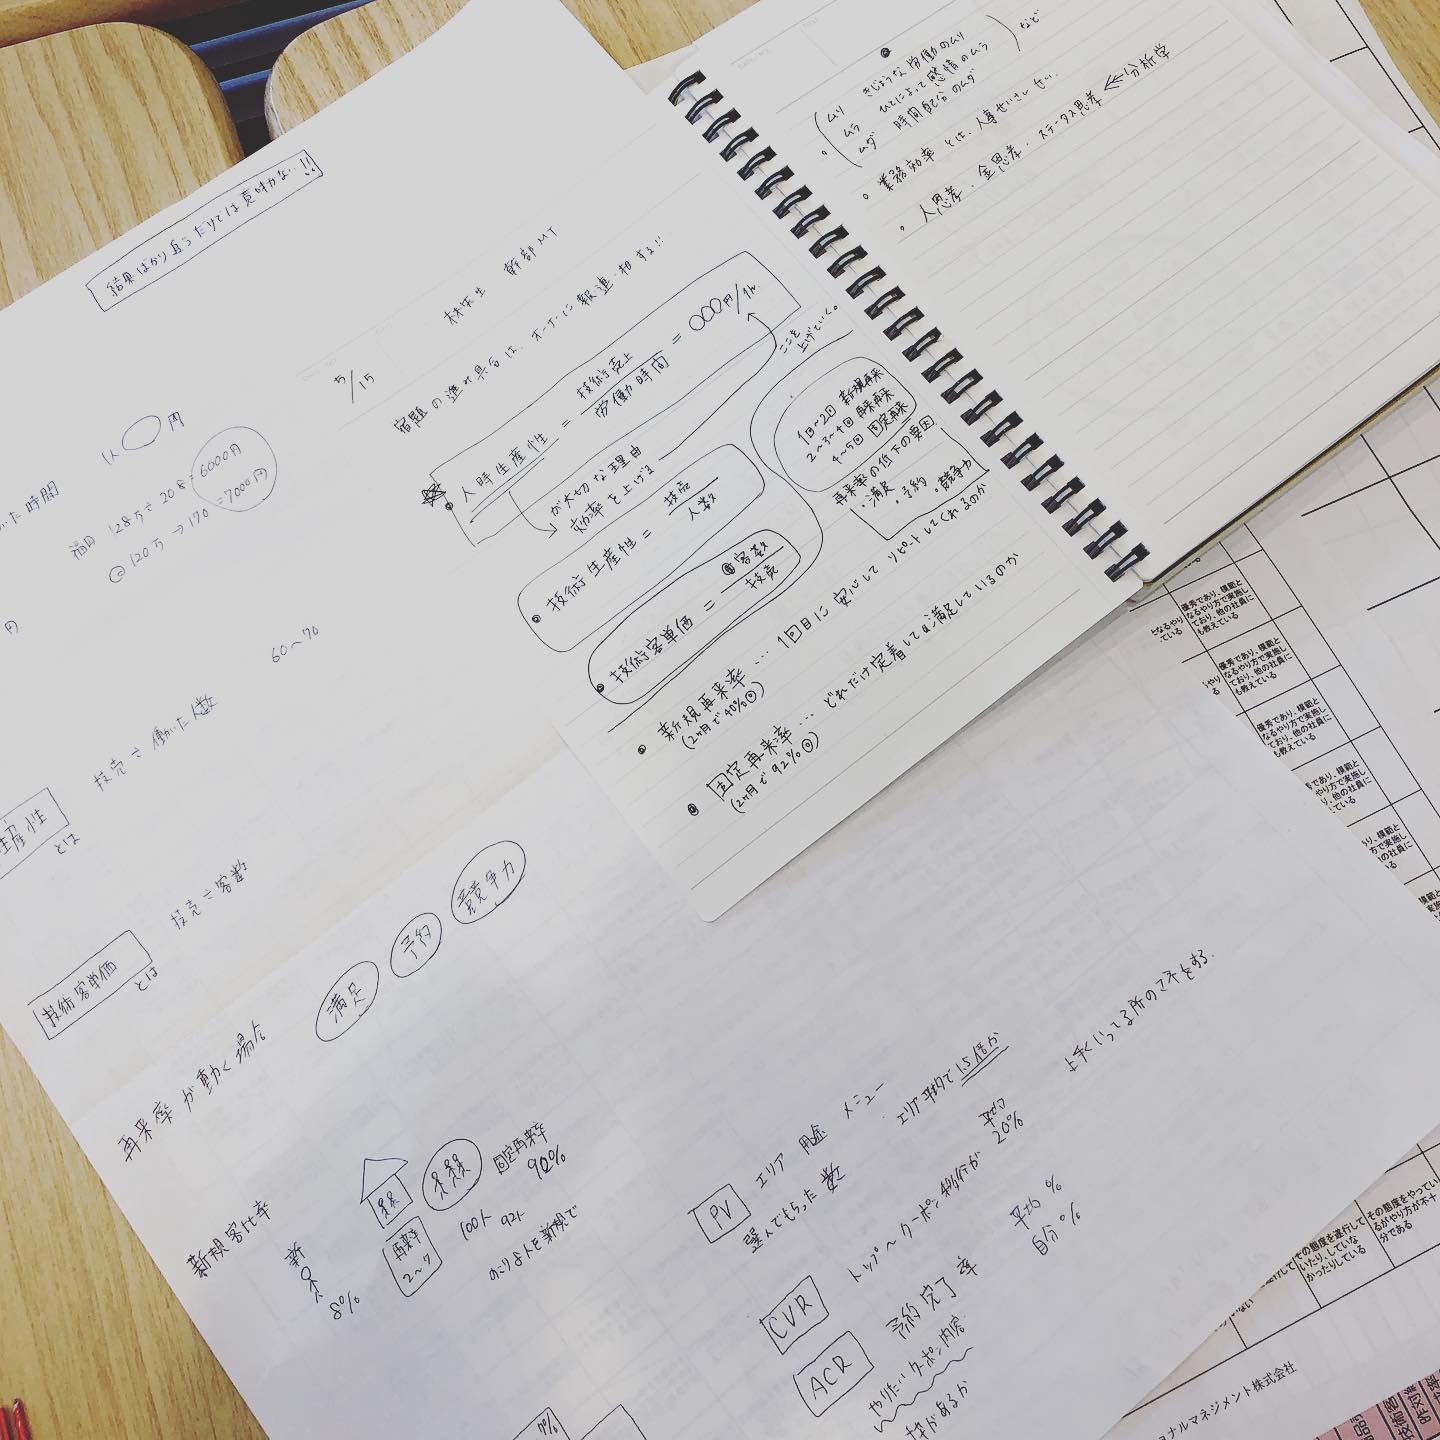 結果ばかり追うだけでは意味がない!!
1人 〇円
いた時間
福田 128万÷208=6000円
◎120万→170 =7000円
円
60〜70
技売÷働いた人数
生産性
とは
技売÷客数
技術客単価
とは
5/15
林先生 幹部MT
宿題の進み具合は、オーナーに報・連・相する!!
人時生産性 = 技術売上/労働時間 = 〇〇〇円/1h
が大切な理由
効率を上げる
ここを上げていく。
技術生産性 = 技売/人数
技術客単価 = 客数/技売
1回〜2回 新規再来
2〜3〜4回 再来再来
4〜5回 固定再来
再来率の低下の要因
・満足 ・予約 ・競争力
新規再来率…1回目に安心してリピートしてくれるのか
(2ヶ月で40%◎)
固定再来率…どれだけ定着して満足しているのか
(2ヶ月で92%◎)
ムリ きじょうな労働のムリ
ムラ ひとによって感情のムラ
ムダ 時間配分のムダ
など
業務効率とは、人事せいさんせい
人思考・金思考・ステータス思考 ≪分析学
再来率が動く場合
満足
予約
競争力
新規客比率
新
8%
再来率
2〜7
固定再来率
92%
100人 92人
のこり8人を新規で
PV
エリア 用途 メニュー
選んでもらった数
エリア平均で1.5倍が
CVR
トップ〜クーポン移行が
平均
20%
上手くいってる所のマネをする。
ACR
予約完了率
平均%
自分%
やりたいクーポン内容
があるか
優秀であり、模範と
なるやり方で実施し
ており、他の社員に
も教えている
優秀であり、模範と
なるやり方で実施し
ており、他の社員に
も教えている
優秀であり、模範と
なるやり方で実施し
ており、他の社員に
も教えている
その態度を遂行して
いたり、していな
かったりしている
その態度をやってい
るがやり方が不十
分である
ョナルマネジメント株式会社